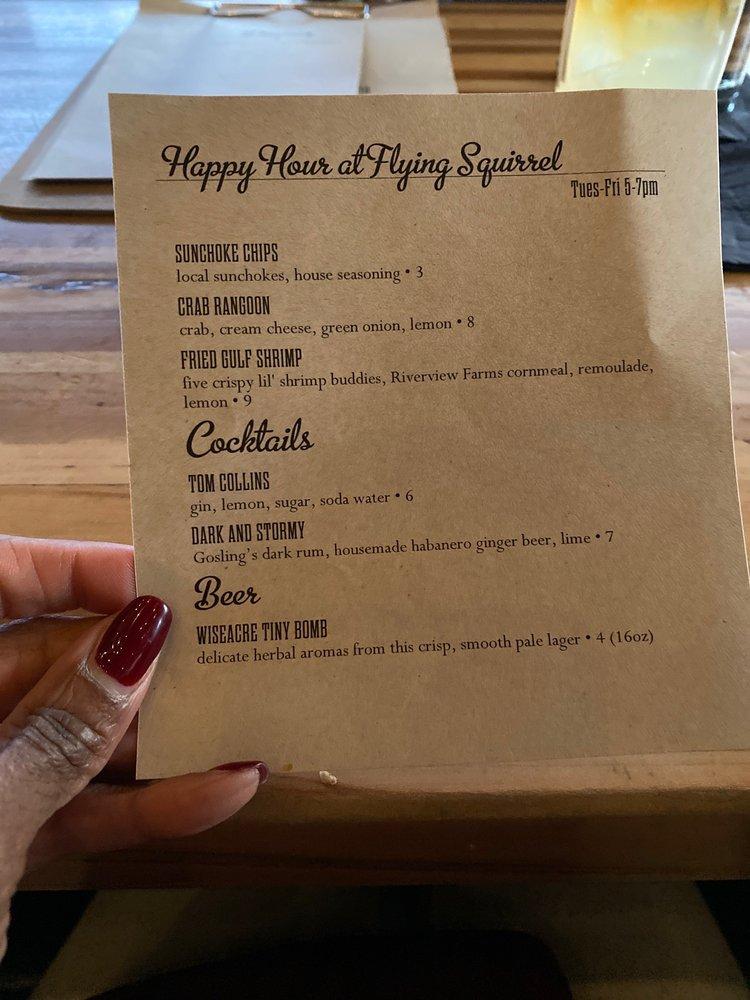 Happy Hour at Flying Squirrel
Tues-Fri 5-7pm
SUNCHOKE CHIPS
local sunchokes, house seasoning • 3
CRAB RANGOON
crab, cream cheese, green onion, lemon • 8
FRIED GULF SHRIMP
five crispy lil' shrimp buddies, Riverview Farms cornmeal, remoulade,
lemon • 9
Cocktails
TOM COLLINS
gin, lemon, sugar, soda water • 6
DARK AND STORMY
Gosling's dark rum, housemade habanero ginger beer, lime • 7
Beer
WISEACRE TINY BOMB
delicate herbal aromas from this crisp, smooth pale lager • 4 (16oz)